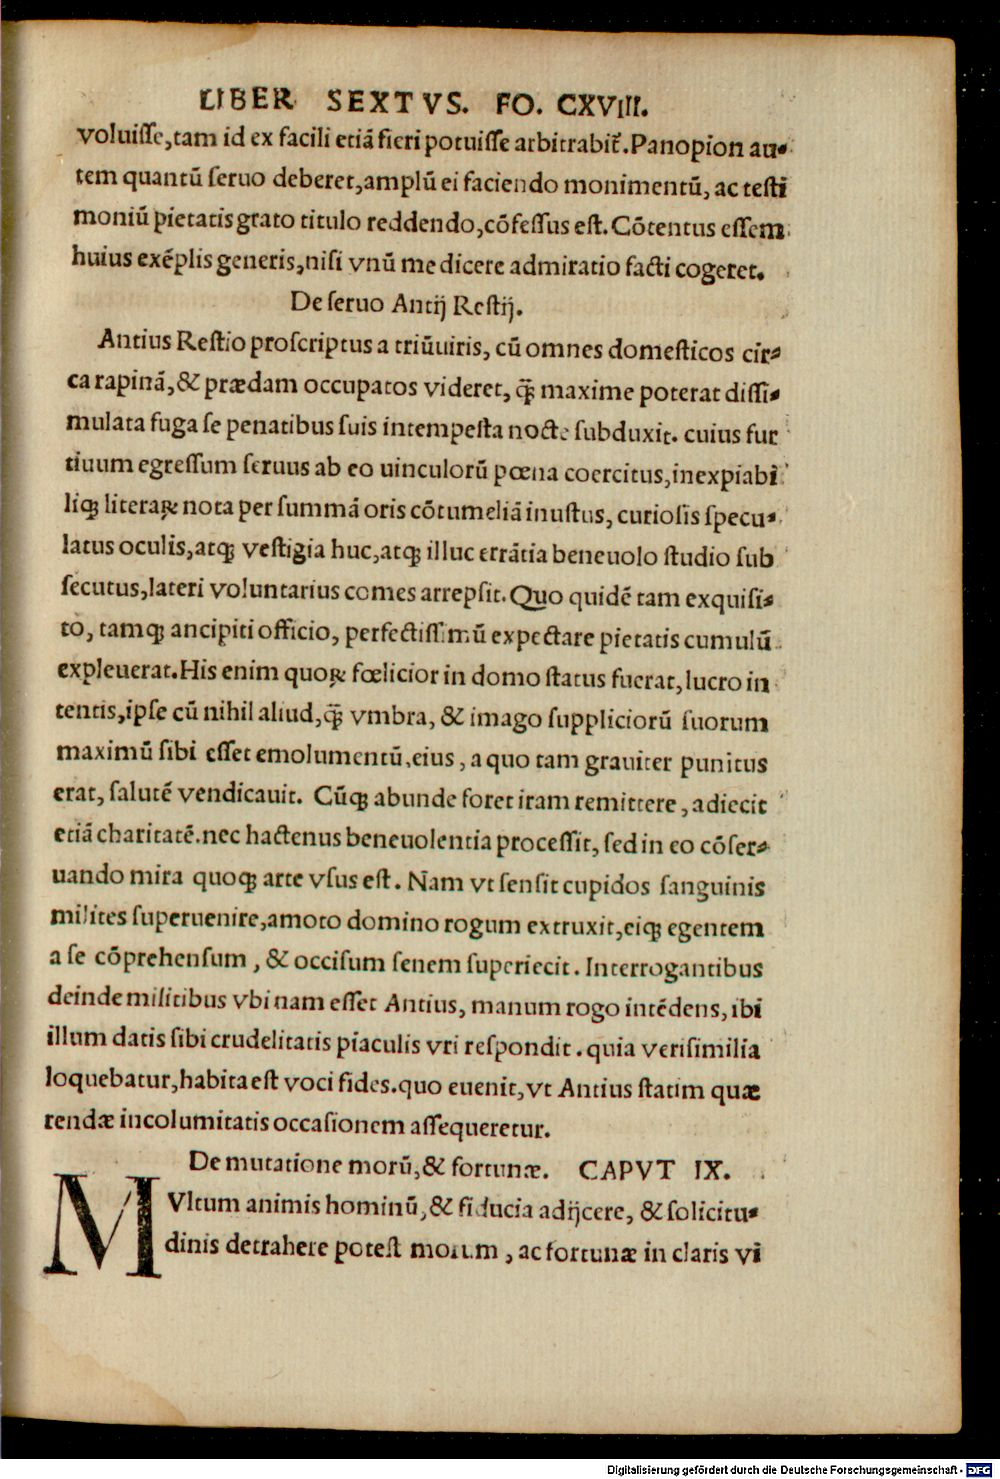 LIBER SEXTVS. FO. CXVIII.
voluiſſe,tam id ex facili etiā fieri potuiſſe arbitrabit̃.Panopion au-
tem quantū ſeruo deberet,amplū ei faciendo monimentū, ac teſti
moniū pietatis grato titulo reddendo,cōfeſſus eſt. Cōtentus eſſem
huius exēplis generis,niſi vnū me dicere admiratio facti cogeret.
De ſeruo Antij Reſtij.
Antius Reſtio proſcriptus a triūuiris, cū omnes domeſticos cir-
ca rapinā,& prædam occupatos videret, q̄ maxime poterat diſſi-
mulata fuga ſe penatibus ſuis intempeſta nocte ſubduxit. cuius fur
tiuum egreſſum ſeruus ab eo uinculorū pœna coercitus,inexpiabi
liqꝫ literaꝝ nota per ſummā oris cōtumeliā inuſtus, curioſis ſpecu-
latus oculis,atqꝫ veſtigia huc,atqꝫ illuc errātia beneuolo ſtudio ſub
ſecutus,lateri voluntarius comes arrepſit. Quo quidē tam exquiſi-
to, tamqꝫ ancipiti officio, perfectiſſimū expectare pietatis cumulū
expleuerat.His enim quoꝝ fœlicior in domo ſtatus fuerat,lucro in
tentis,ipſe cū nihil aliud,q̄ vmbra, & imago ſuppliciorū ſuorum
maximū ſibi eſſet emolumentū,eius, a quo tam grauiter punitus
erat, ſalutē vendicauit. Cūqꝫ abunde foret iram remittere, adiecit
etiā charitatē.nec hactenus beneuolentia proceſſit, ſed in eo cōſer-
uando mira quoqꝫ arte vſus eſt. Nam vt ſenſit cupidos ſanguinis
milites ſuperuenire,amoto domino rogum extruxit,eiqꝫ egentem
a ſe cōprehenſum, & occiſum ſenem ſuperiecit. Interrogantibus
deinde militibus vbi nam eſſet Antius, manum rogo intēdens, ibi
illum datis ſibi crudelitatis piaculis vri reſpondit. quia veriſimilia
loquebatur,habita eſt voci fides.quo euenit,vt Antius ſtatim quæ
rendæ incolumitatis occaſionem aſſequeretur.
De mutatione morū,& fortunæ. CAPVT IX.
MVltum animis hominū,& fiducia adijcere, & ſolicitu-
dinis detrahere poteſt morum, ac fortunæ in claris vi
Digitalisierung gefördert durch die Deutsche Forschungsgemeinschaft - DFG